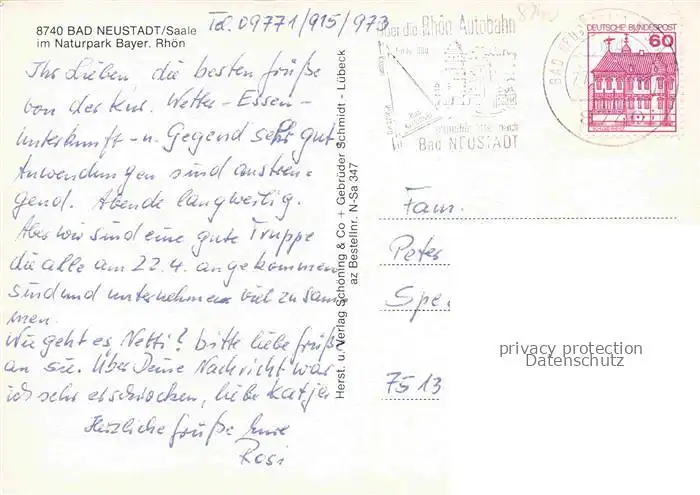 8740 BAD NEUSTADT/Saale
im Naturpark Bayer. Rhön
Tel. 09771/915/973
Ihr Lieben, die besten Grüße
von der Kur. Wetter - Essen -
Unterkunft - u. Gegend sehr gut
Anwendungen sind anstren-
gend. Abende langweilig.
Aber wir sind eine gute Truppe
die alle am 22.4. angekommen
sind und unternehmen viel zusam
men.
Wie geht es Netti? bitte liebe Grüße
an sie. Über Deine Nachricht war
ich sehr erschrocken, liebe Katja
Herzliche Grüße Eure
Rosi
Herst. u. Verlag Schöning & Co + Gebrüder Schmidt - Lübeck
az Bestellnr. N-Sa 347
über die Rhön Autobahn
nach
Bad NEUSTADT
BAD NEU
DEUTSCHE BUNDESPOST
60
Fam.
Peter
Spe
7513
privacy protection
Datenschutz